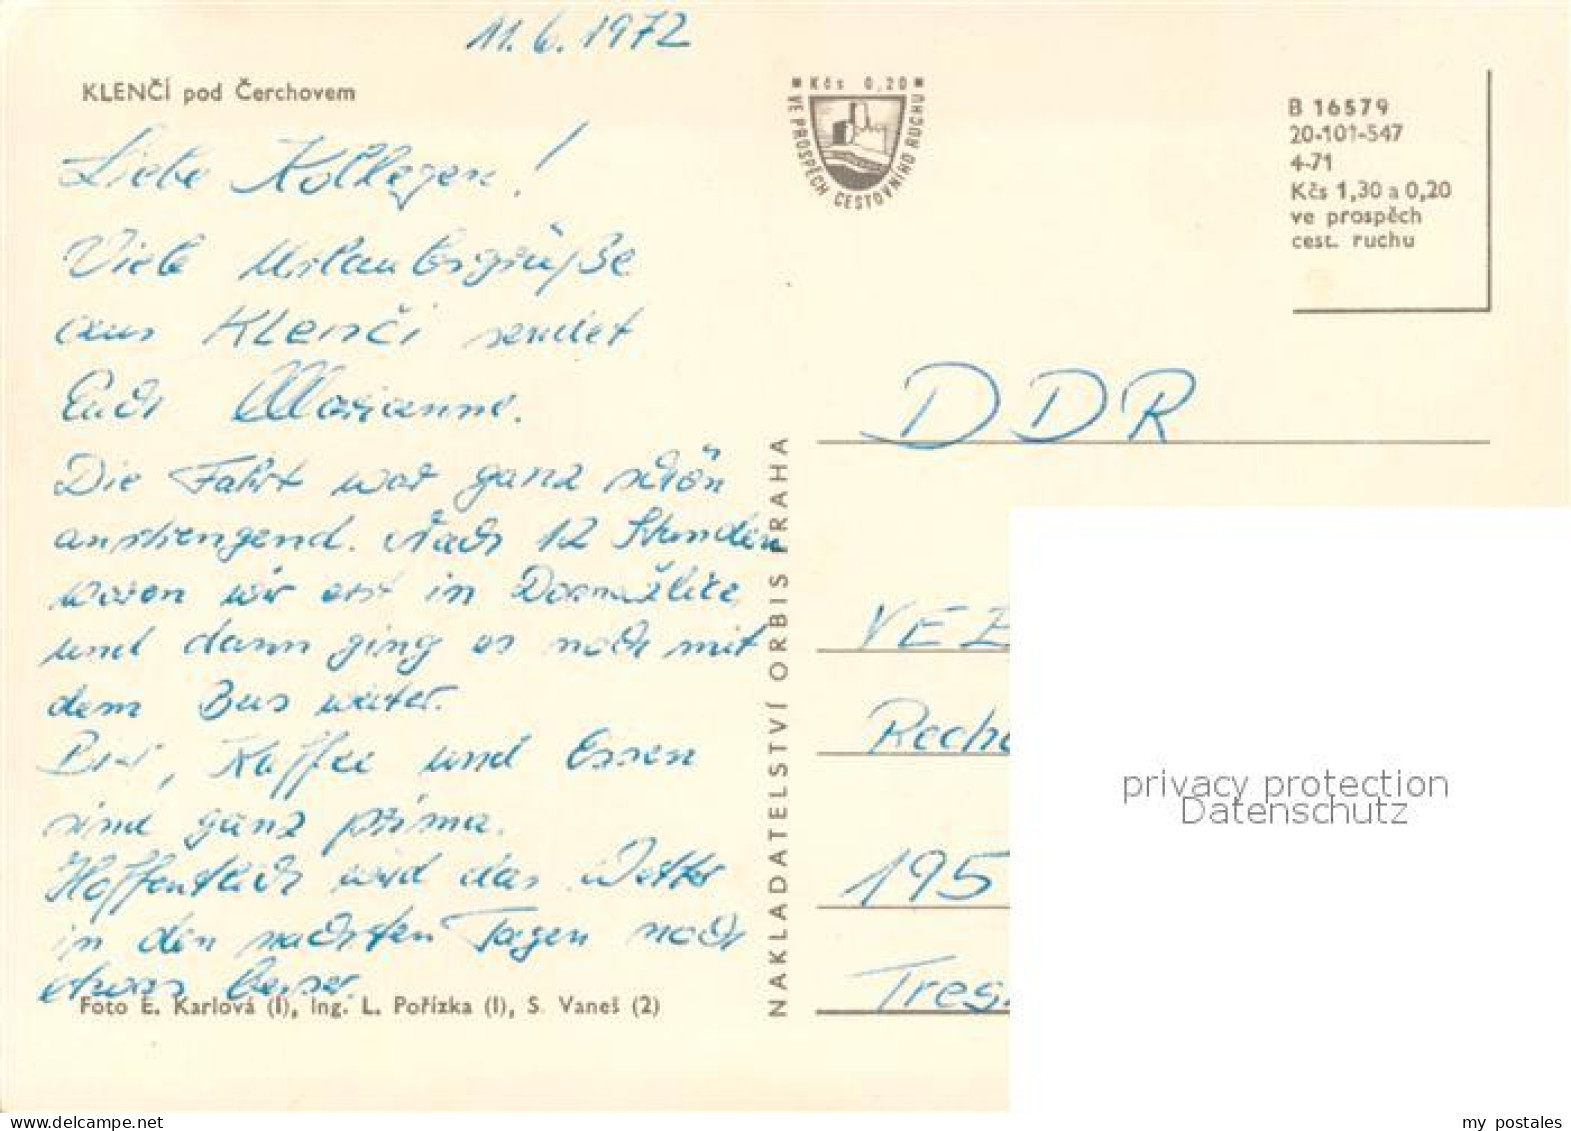 11.6.1972
KLENČÍ pod Čerchovem
Liebe Kollegen!
Viele Urlaubsgrüße
aus Klenči sendet
Euch Marianne.
Die Fahrt war ganz schön
anstrengend. Nach 12 Stunden
waren wir erst in Domažlice
und dann ging es noch mit
dem Bus weiter.
Bier, Kaffee und Essen
sind ganz prima.
Hoffentlich wird das Wetter
in den nächsten Tagen noch
etwas besser.
Foto E. Karlová (1), Ing. L. Pořízka (1), S. Vaneš (2)
NAKLADATELSTVÍ ORBIS PRAHA
Kčs 0,20
VE PROSPĚCH CESTOVNÍHO RUCHU
B 16579
20-101-547
4-71
Kčs 1,30 a 0,20
ve prospěch
cest. ruchu
DDR
VEB
Reche
195
Tres
privacy protection
Datenschutz
my postales